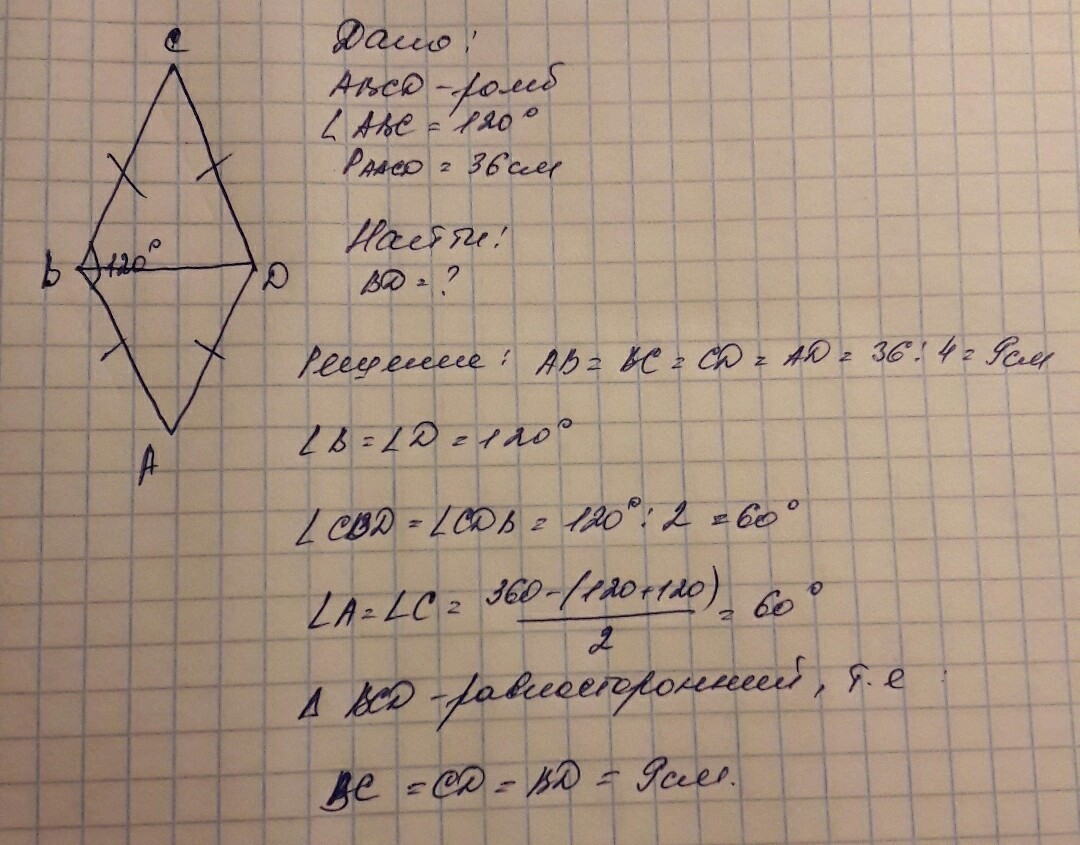 C
Дано:
ABCD - ромб
∠ABC = 120°
PABCD = 36см
Найти:
B 120° D
BD = ?
Решение: AB = BC = CD = AD = 36 : 4 = 9см
∠B = ∠D = 120°
A
∠CBD = ∠CDB = 120° : 2 = 60°
∠A = ∠C = 360-(120+120)/2 = 60°
Δ BCD - равносторонний, т.е :
BC = CD = BD = 9см.